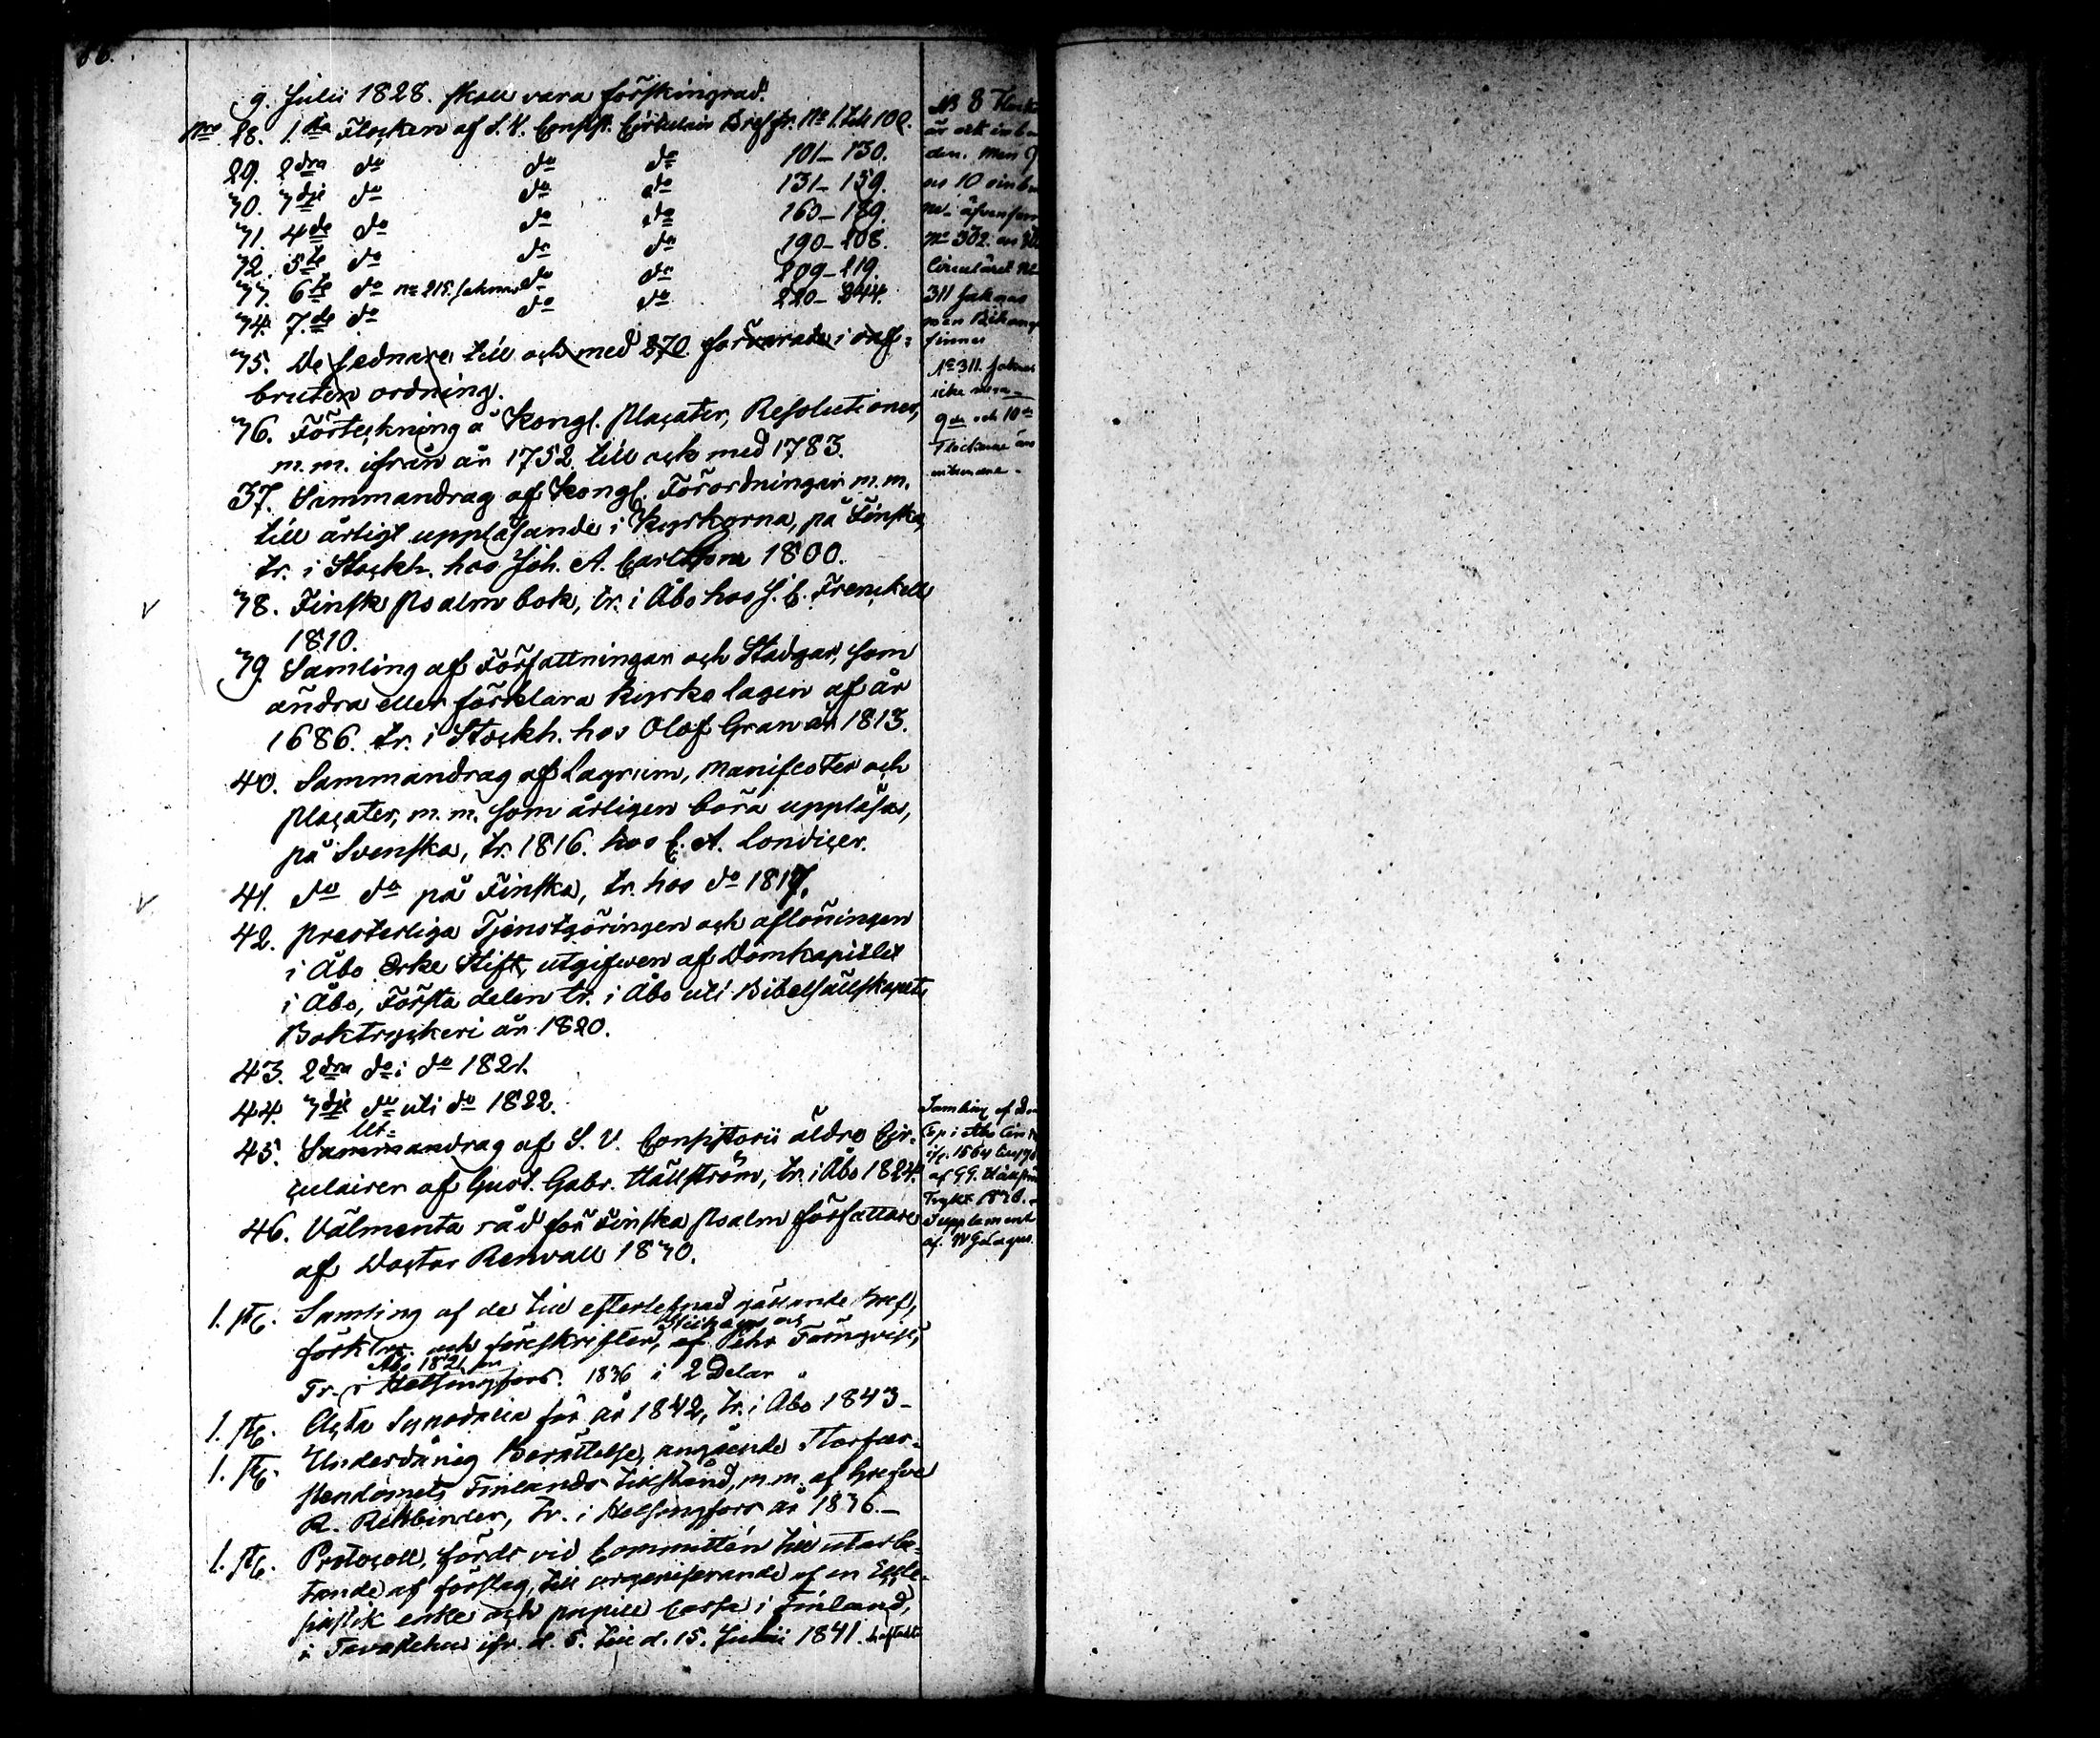 9. Julii 1828. skall vara förskingrad.
Nro 28. 1.sta Flocken af S. V. Consist. Cirkulair Bref fr. No 1. till 100.
29. 2dra do do do 101–130.
30. 3dje do do do 131–159.
31. 4de do do do 160–189.
32. 5te do do do 190–208.
33. 6te do no 215. saknas do do 209–219.
34. 7.de do do do 220–244.
35. De sednare till och med 270 förvarade i oaf-
bruten ordning.
36. Förteckning å Kongl. Placater, Resolutioner,
m.m. ifrån år 1752 till och med 1783.
37. Sammandrag af Kongl. Förordningar m.m.
till årligt uppläsande i Kyrkorna, på Finska,
tr. i Stockh. hos Joh. A. Carlbohm 1800.
38. Finsk Psalmbok, tr. i Åbo hos J. C. Frenckell
1810.
39. Samling af Författningar och Stadgar, som
ändra eller förklara Kyrko lagen af år
1686. tr. i Stockh. hos Olof Gran år 1813.
40. Sammandrag af Lagrum, Manifester och
Placater, m.m. som årligen böra uppläsas,
på Svenska, tr. 1816. hos E. A. Londicer.
41. do do på Finska, tr. hos do 1817.
42. Presterliga Tjenstgöringen och aflöningen
i Åbo Erke Stift, utgifwen af Domkapitlet
i Åbo, Första delen tr. i Åbo uti Bibelsällskapets
Boktryckeri år 1820.
43. 2dra do i do 1821.
44. 3dje do uti do 1822.
Ut-
45. Sammandrag af S. V. Consistorii äldre Cir-
culairer af Gust. Gabr. Hällström, tr. i Åbo 1824.
46. Välmenta råd för Finska Psalm författare
af Doctor Renvall 1830.
1. st. Samling af de till efterlefnad gällande Bref,
förklar. och föreskrifter, af Pehr Törnqvist,
Åbo 1821
Tr. i Helsingfors. 1836 i 2 Delar
1. st. Acta Synodalia för år 1842, tr. i Åbo 1843–
1. st. Underdånig Berättelse, angående Storfur-
stendömets Finlands tillstånd, m.m. af Grefve
R. Rehbinder, tr. i Helsingfors år 1836.–
1. st. Protocoll, förde vid Committén till utarbe-
tande af förslag, till organiserande af en Eccle-
siastik enke och pupill cassa i Finland,
i Tavastehus ifr. d. 5. till d. 15. Julii 1841.
NB 8
den. Men
No 302.
Circuläret No
311 saknas
men Bihang
finnes
No 311. saknas
icke mera
9de och 10de
Flockarne äro
Samling af
i Åbo
ifr. 1564
af GG. Hällström
Tryckt 1836.
Supplement
af W G Lagus.